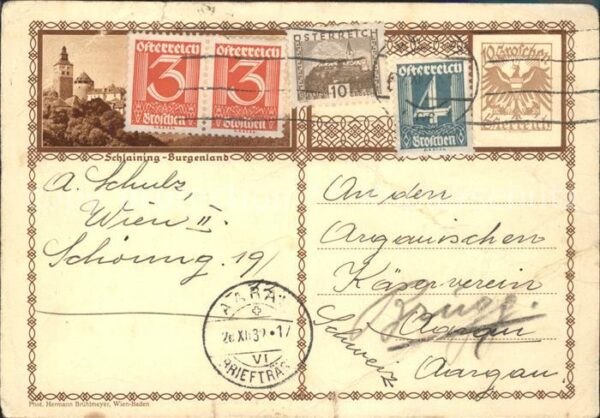 Österreich
3
Groschen
Österreich
3
Groschen
ÖSTERREICH
10
Österreich
4
Groschen
10 Groschen
Österreich
Schlaining - Burgenland
A. Schulz,
Wien II.
Schöning. 19/
An den
Argauischen
Käserverein
Brugg.
Aarau
Schweiz Aargau.
AARAU
26.XII.32.17
VI
BRIEFTRÄG
Phot. Hermann Brühlmeyer, Wien-Baden